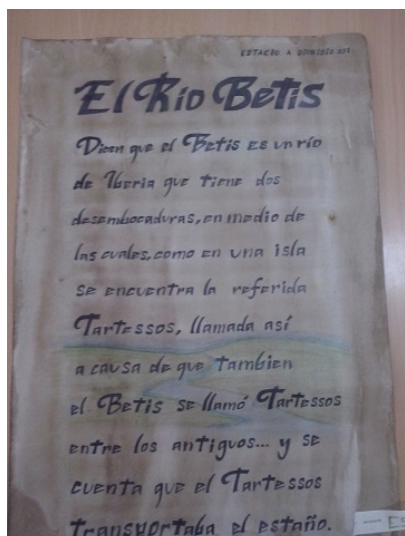 El Río Betis
Dicen que el Betis es un río
de Iberia que tiene dos
desembocaduras, en medio de
las cuales, como en una isla
se encuentra la referida
Tartessos, llamada así
a causa de que tambien
el Betis se llamó Tartessos
entre los antiguos... y se
cuenta que el Tartessos
transportaba el estaño.